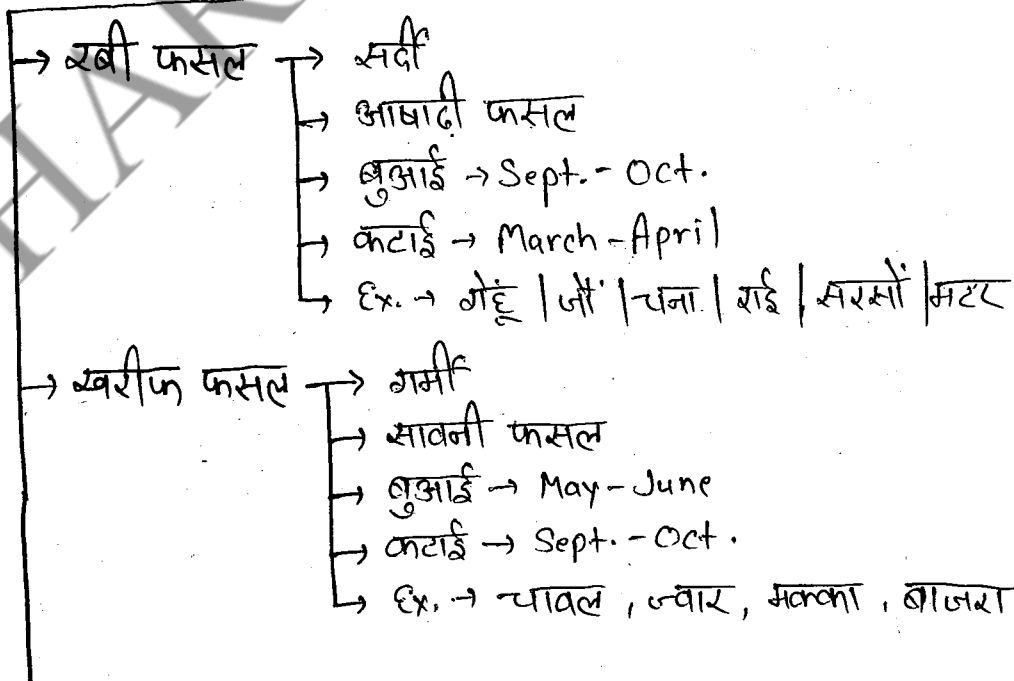 → रबी फसल → सर्दी
→ आषाढ़ी फसल
→ बुआई → Sept. - Oct.
→ कटाई → March - April
→ Ex. → गेहूं | जौं | चना | राई | सरसों | मटर
→ खरीफ फसल → गर्मी
→ सावनी फसल
→ बुआई → May - June
→ कटाई → Sept. - Oct.
→ Ex. → चावल , ज्वार , मक्का , बाजरा